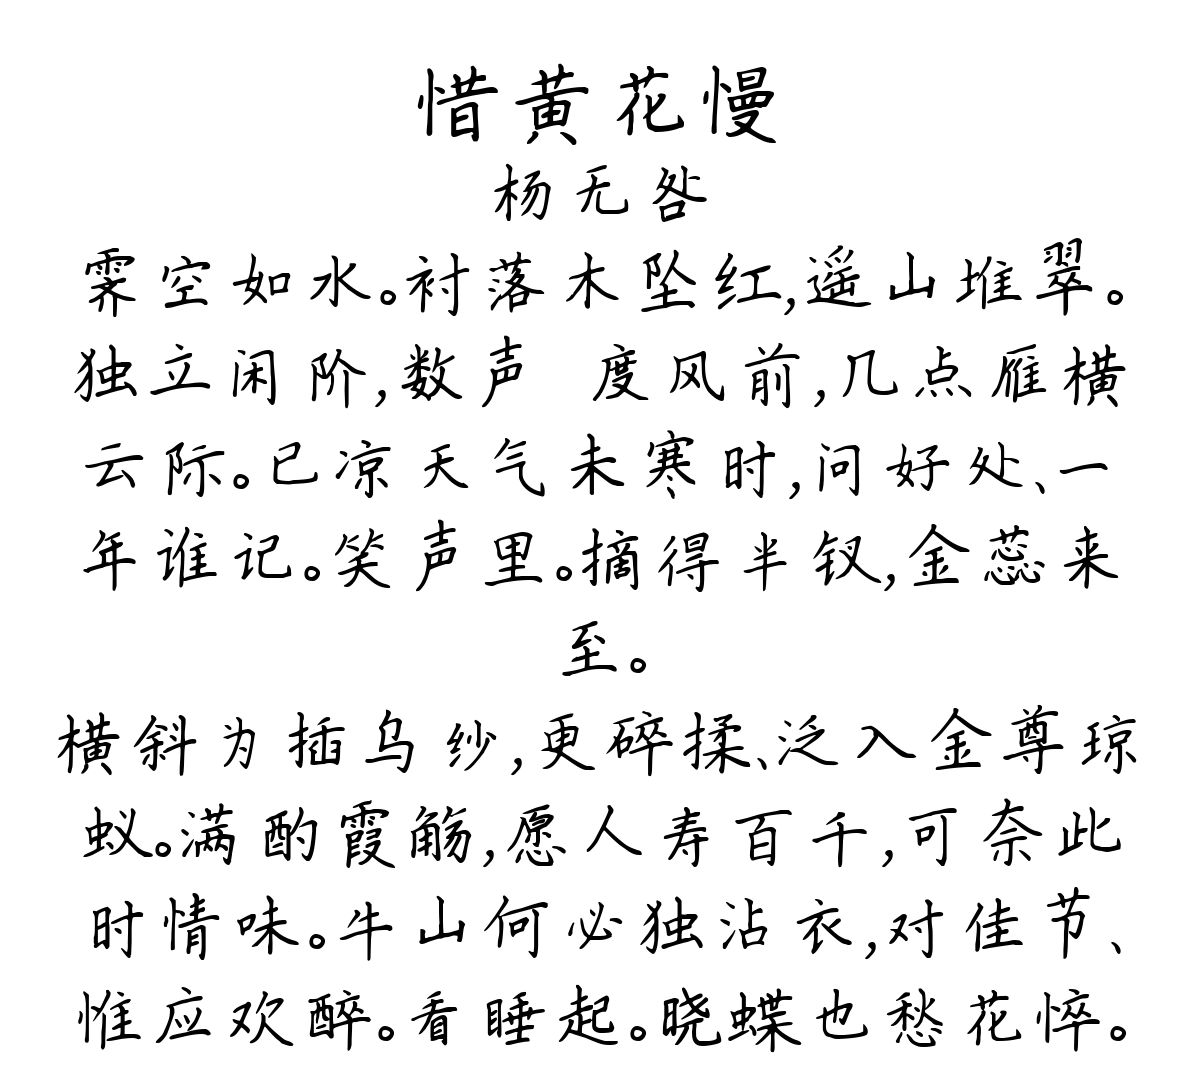 惜黄花慢
杨无咎
霁空如水。衬落木坠红,遥山堆翠。
独立闲阶,数声 度风前,几点雁横
云际。已凉天气未寒时,问好处、一
年谁记。笑声里。摘得半钗,金蕊来
至。
横斜为插乌纱,更碎揉、泛入金尊琼
蚁。满酌霞觞,愿人寿百千,可奈此
时情味。牛山何必独沾衣,对佳节、
惟应欢醉。看睡起。晓蝶也愁花悴。